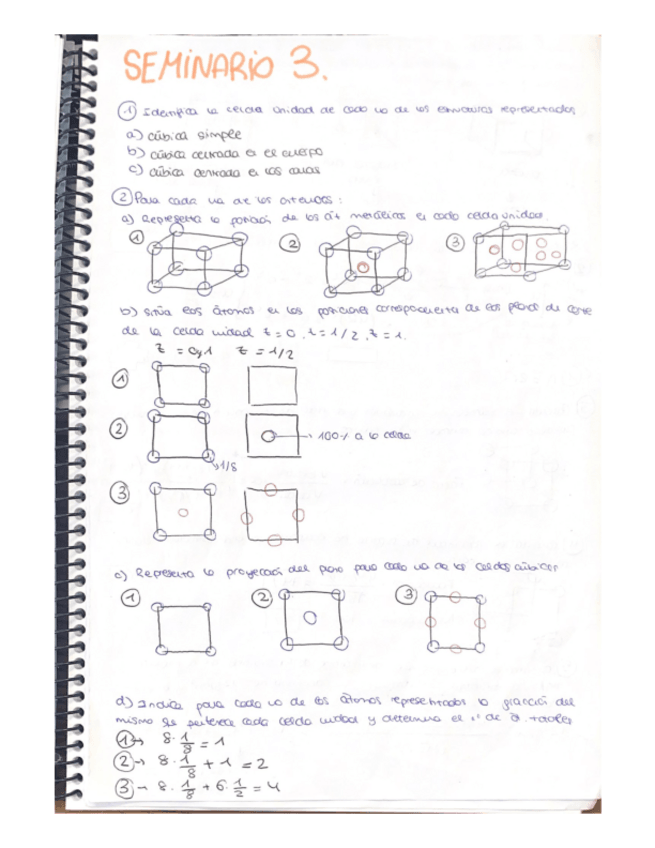 SEMINARIO 3.
① Identifica la celda unidad de cada una de las estructuras representadas
a) cúbica simple
b) cúbica centrada en el cuerpo
c) cúbica centrada en las caras
② Para cada una de las :
a) Representa la posición de los át metálicos en cada celda unidad.
① ② ③
b) sitúa los átomos en las posiciones correspondientes de los planos de corte
de la celda unidad z = 0, z = 1/2, z = 1.
z = 0y1 z = 1/2
①
② 100% a la celda
1/8
③
c) Representa la proyección del plano para cada una de las celdas cúbicas
① ② ③
d) Indica para cada uno de los átomos representados la fracción del
mismo que pertenece cada celda unidad y determina el nº de totales
①→ 8·1/8 = 1
②→ 8·1/8 + 1 = 2
③→ 8·1/8 + 6·1/2 = 4